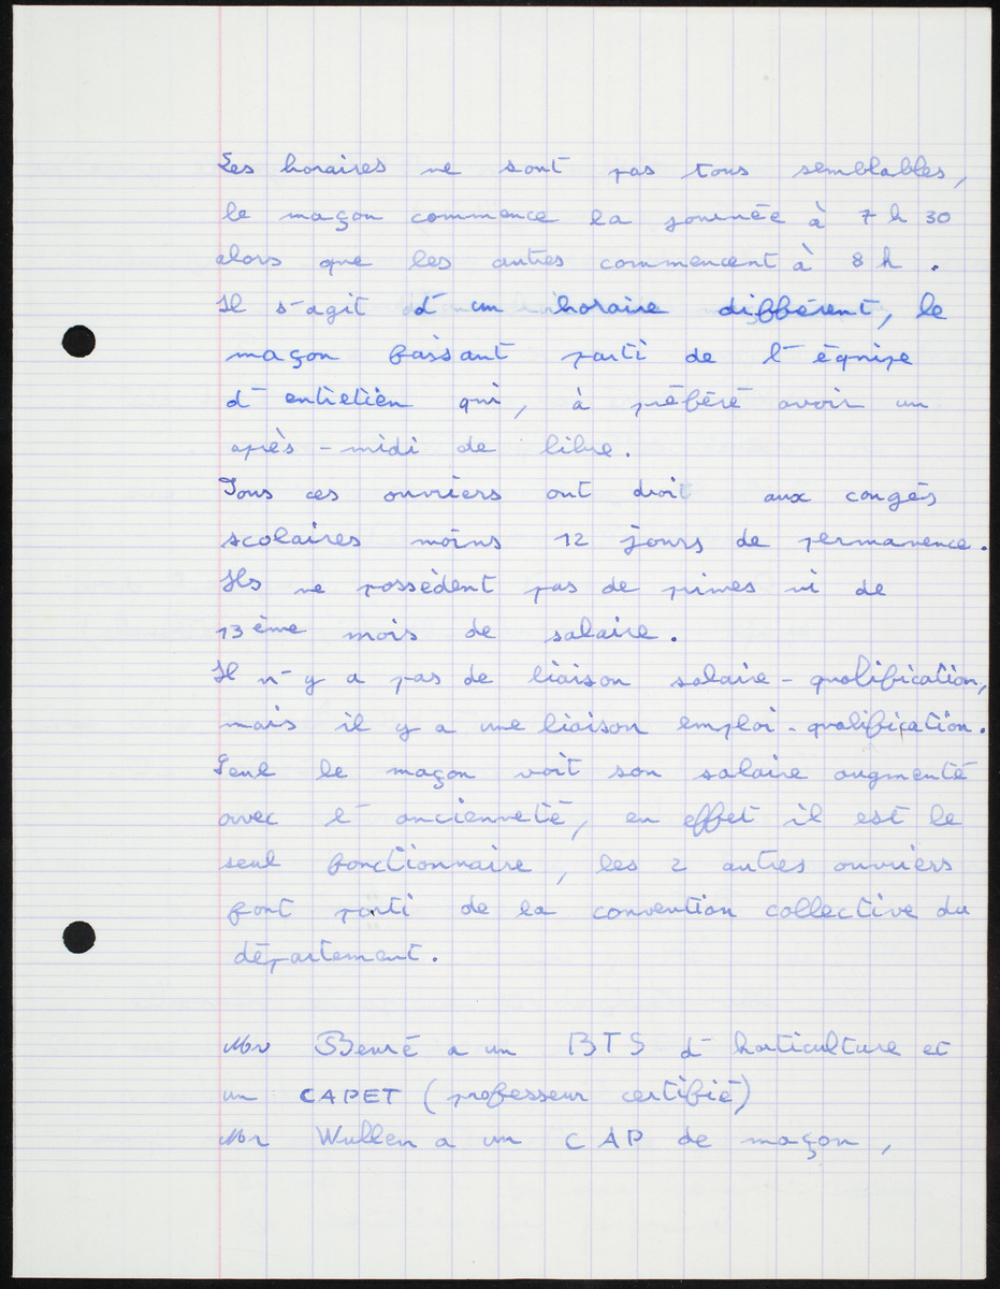 Les horaires ne sont pas tous semblables,
le maçon commence la journée à 7 h 30
alors que les autres commencent à 8 h.
Il s'agit d'un horaire différent, le
maçon faisant parti de l'équipe
d'entietien qui, à préféré avoir un
après-midi de libre.
Tous ces ouvriers ont droit aux congés
scolaires moins 12 jours de permanence.
Ils ne possèdent pas de primes ni de
13 ème mois de salaire.
Il n'y a pas de liaison salaire - qualification,
mais il y a une liaison emploi - qualification.
Seul le maçon voit son salaire augmenté
avec l'ancienneté, en effet il est le
seul fonctionnaire, les 2 autres ouvriers
font parti de la convention collective du
département.
Mr a un BTS d'horticulture et
un CAPET (professeur certifié)
Mr Wullen a un CAP de maçon,